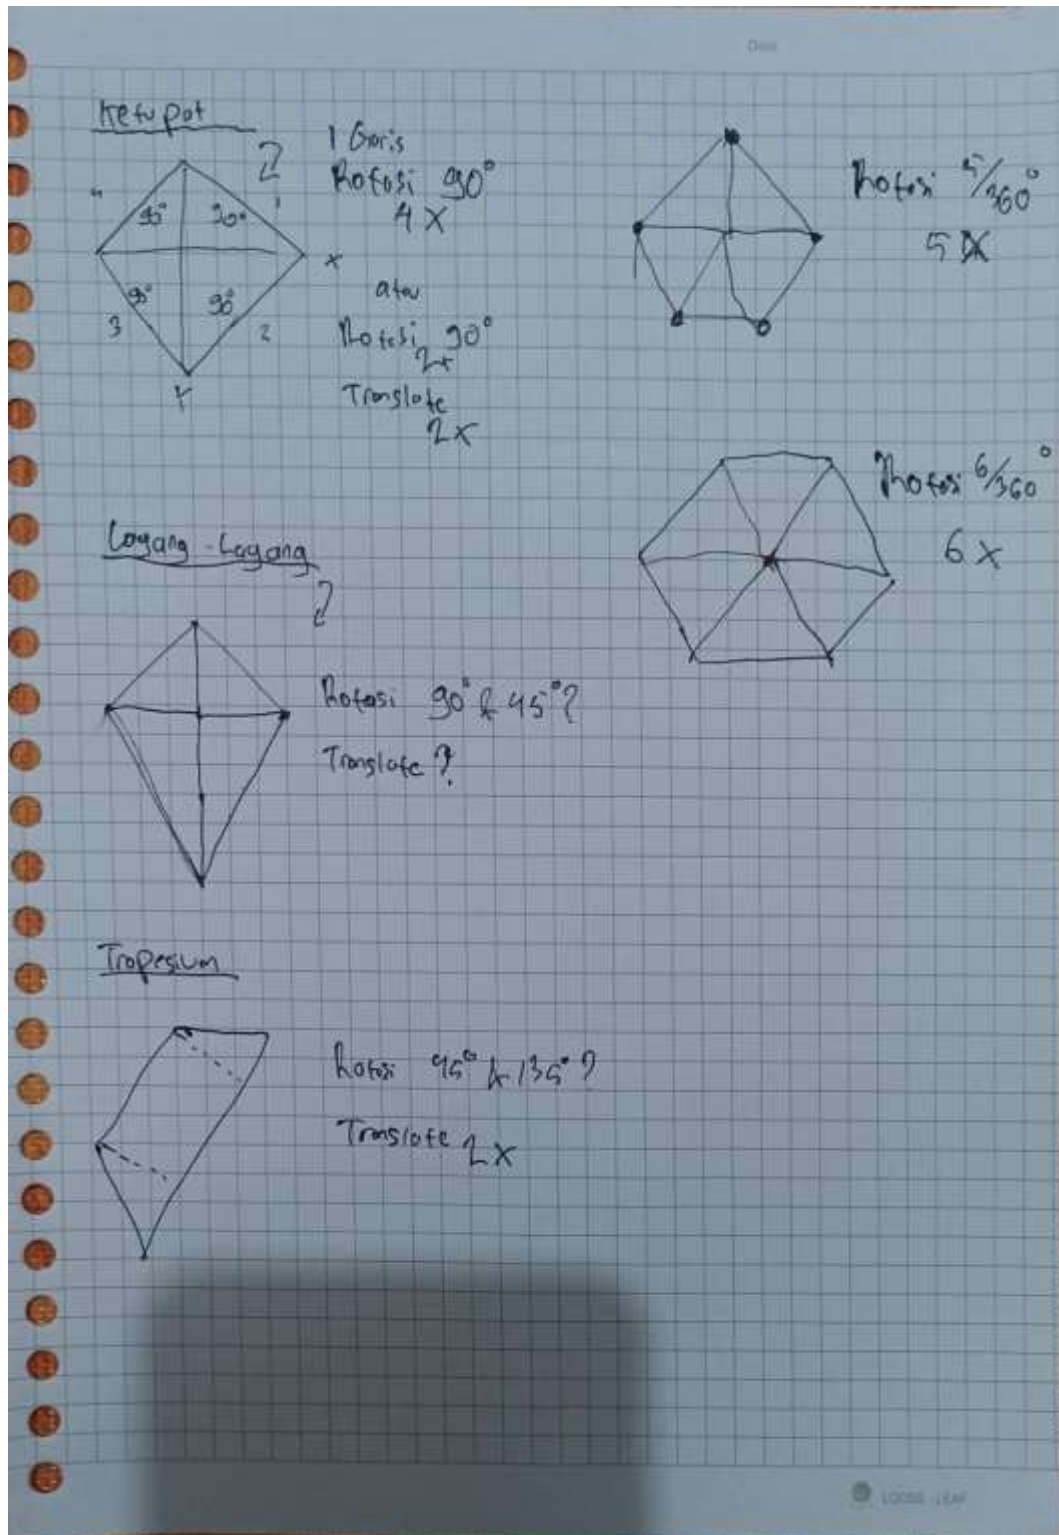 Date
Ketupat
1 Garis
Rotasi 90°
4 X
atau
Rotasi 90°
2x
Translate
2X
4
1
90°
90°
X
90°
90°
3
2
Y
Rotasi 5/360°
5 X
Rotasi 6/360°
6 X
Layang - Layang
Rotasi 90° & 45°?
Translate ?
Trapesium
Rotasi 45° & 135°?
Translate 2X
LOOSE LEAF